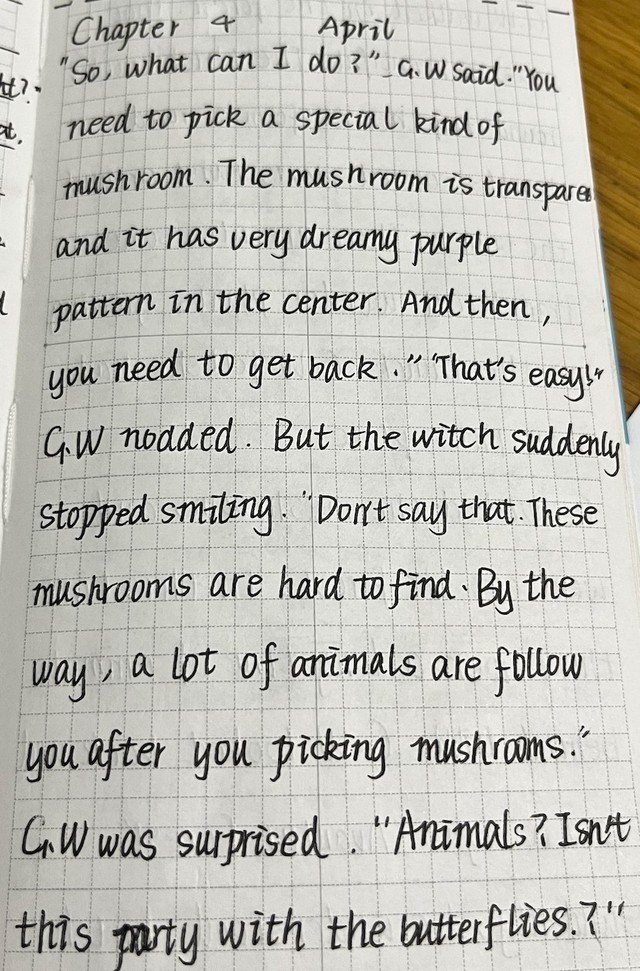 Chapter 4 April
"So, what can I do?" G.W said. "You
need to pick a special kind of
mushroom. The mushroom is transpare
and it has very dreamy purple
pattern in the center. And then,
you need to get back." "That's easy!"
G.W nodded. But the witch suddenly
stopped smiling. "Don't say that. These
mushrooms are hard to find. By the
way, a lot of animals are follow
you after you picking mushrooms."
G.W was surprised. "Animals? Isn't
this party with the butterflies.?"